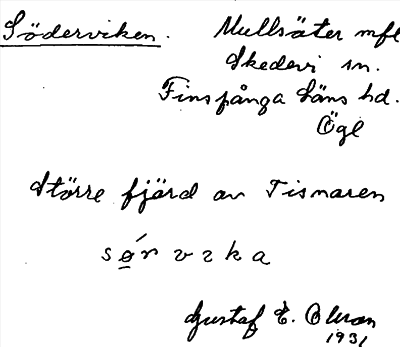 Söderviken. Mullsäter mfl
Skedevi sn.
Finspånga Läns hd.
Ögl
Större fjärd av Tisnaren
Gustaf E.
1931